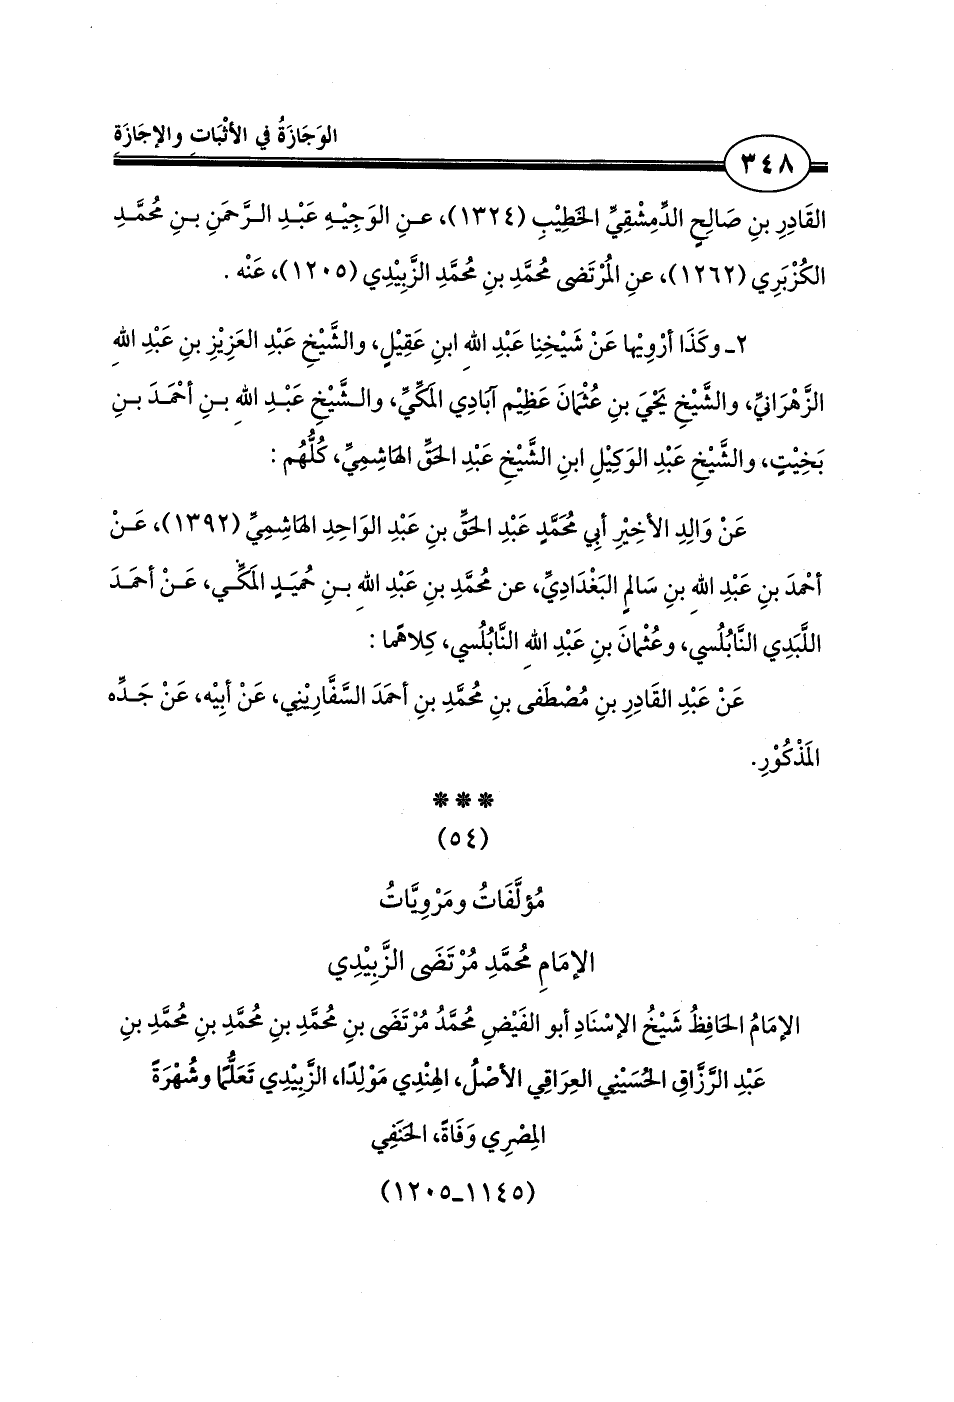 الوَجَازَةُ في الأثْبَاتِ والإجَازَةِ
٣٤٨
القَادِرِ بنِ صَالِحٍ الدِّمِشْقِيِّ الخَطِيْبِ (١٣٢٤)، عَنِ الوَجِيْهِ عَبْدِ الرَّحمَنِ بنِ مُحَمَّدِ
الكُزْبَرِي (١٢٦٢)، عنِ المُرْتَضى مُحَمَّدِ بنِ مُحَمَّدِ الزَّبِيْدِي (١٢٠٥)، عَنْه .
٢ـ وكَذَا أرْوِيْها عَنْ شَيْخِنا عَبْدِ اللهِ ابنِ عَقِيْلٍ، والشَّيْخِ عَبْدِ العَزِيْزِ بنِ عَبْدِ اللهِ
الزَّهْرَانيِّ، والشَّيْخِ يَحْيَ بنِ عُثْمَانَ عَظِيْم آبَادِي المَكِّيِّ، والشَّيْخِ عَبْدِ اللهِ بنِ أحْمَدَ بنِ
بَخِيْتٍ، والشَّيْخِ عَبْدِ الوَكِيْلِ ابنِ الشَّيْخِ عَبْدِ الحَقِّ الهَاشِمِيِّ، كُلُّهُم :
عَنْ وَالِدِ الأخِيْرِ أبي مُحَمَّدٍ عَبْدِ الحَقِّ بنِ عَبْدِ الوَاحِدِ الهَاشِمِيِّ (١٣٩٢)، عَنْ
أحْمَدَ بنِ عَبْدِ اللهِ بنِ سَالمٍ البَغْدَادِيِّ، عن مُحَمَّدِ بنِ عَبْدِ اللهِ بنِ حُمَيَدٍ المَكِّي، عَنْ أحْمَدَ
اللَّبَدِي النَّابُلْسي، وعُثْمانَ بنِ عَبْدِ اللهِ النَّابُلْسي، كِلاهُما :
عَنْ عَبْدِ القَادِرِ بنِ مُصْطَفى بنِ مُحَمَّدِ بنِ أحمَدَ السَّفَّارِيْني، عَنْ أبِيْه، عَنْ جَدِّه
المَذْكُوْرِ.
***
(٥٤)
مُؤلَّفَاتُ ومَرْوِيَّاتُ
الإمَامِ مُحَمَّدِ مُرْتَضَى الزَّبِيْدِي
الإمَامُ الحَافِظُ شَيْخُ الإسْنَادِ أبو الفَيْضِ مُحَمَّدُ مُرْتَضَى بنِ مُحَمَّدِ بنِ مُحَمَّدِ بنِ مُحَمَّدِ بنِ
عَبْدِ الرَّزَّاقِ الحُسَيْني العِراقي الأصْلُ، الهِنْدِي مَوْلِدًا، الزَّبِيْدِي تَعَلُّمًا وشُهْرَةً
المِصْرِي وَفَاةً، الحَنَفِي
(١١٤٥ـ١٢٠٥)